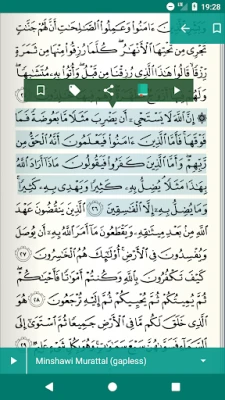 19:28
وَبَشِّرِ ٱلَّذِينَ ءَامَنُوا۟ وَعَمِلُوا۟ ٱلصَّٰلِحَٰتِ أَنَّ لَهُمْ جَنَّٰتٍ
تَجْرِى مِن تَحْتِهَا ٱلْأَنْهَٰرُ كُلَّمَا رُزِقُوا۟ مِنْهَا مِن ثَمَرَةٍ
رِّزْقًا قَالُوا۟ هَٰذَا ٱلَّذِى رُزِقْنَا مِن قَبْلُ وَأُتُوا۟ بِهِۦ مُتَشَٰبِهًا
وَلَهُمْ
۞ إِنَّ ٱللَّهَ لَا يَسْتَحْىِۦٓ أَن يَضْرِبَ مَثَلًا مَّا بَعُوضَةً فَمَا
فَوْقَهَا فَأَمَّا ٱلَّذِينَ ءَامَنُوا۟ فَيَعْلَمُونَ أَنَّهُ ٱلْحَقُّ مِن
رَّبِّهِمْ وَأَمَّا ٱلَّذِينَ كَفَرُوا۟ فَيَقُولُونَ مَاذَآ أَرَادَ ٱللَّهُ
بِهَٰذَا مَثَلًا يُضِلُّ بِهِۦ كَثِيرًا وَيَهْدِى بِهِۦ كَثِيرًا
وَمَا يُضِلُّ بِهِۦٓ إِلَّا ٱلْفَٰسِقِينَ ٢٦ ٱلَّذِينَ يَنقُضُونَ عَهْدَ
ٱللَّهِ مِنۢ بَعْدِ مِيثَٰقِهِۦ وَيَقْطَعُونَ مَآ أَمَرَ ٱللَّهُ بِهِۦٓ أَن يُوصَلَ
وَيُفْسِدُونَ فِى ٱلْأَرْضِ أُو۟لَٰٓئِكَ هُمُ ٱلْخَٰسِرُونَ ٢٧
كَيْفَ تَكْفُرُونَ بِٱللَّهِ وَكُنتُمْ أَمْوَٰتًا فَأَحْيَٰكُمْ
ثُمَّ يُمِيتُكُمْ ثُمَّ يُحْيِيكُمْ ثُمَّ إِلَيْهِ تُرْجَعُونَ ٢٨
هُوَ ٱلَّذِى خَلَقَ لَكُم مَّا فِى ٱلْأَرْضِ جَمِيعًا ثُمَّ ٱسْتَوَىٰٓ إِلَى
ٱلسَّمَآءِ فَسَوَّىٰهُنَّ سَبْعَ سَمَٰوَٰتٍ وَهُوَ بِكُلِّ شَىْءٍ عَلِيمٌ ٢٩
Minshawi Murattal (gapless)